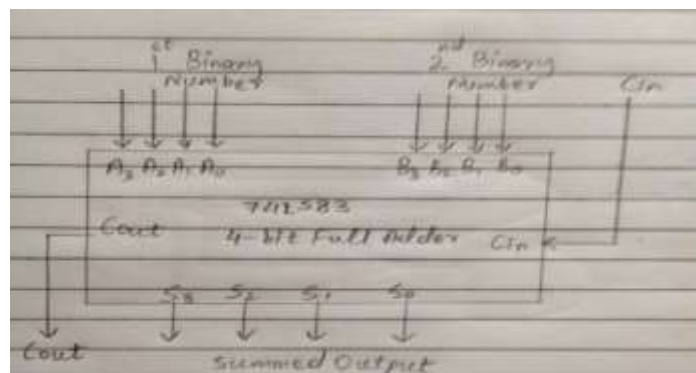 1st Binary Number
2nd Binary Number
Cin
A3 A2 A1 A0
B3 B2 B1 B0
74LS83
Cout
4-bit Full Adder
Cin
S3 S2 S1 S0
Cout
Summed Output